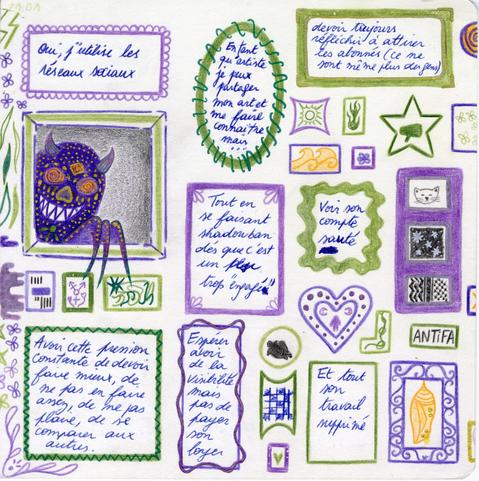 29.01
Oui, j'utilise les
réseaux sociaux
En tant
qu'artiste
je peux
partager
mon art et
me faire
connaître
mais
...
devoir toujours
réfléchir à attirer
les abonnés (ce ne
sont même plus des gens)
Tout en
se faisant
shadowban
dès que c'est
un
trop "engagé"
Voir son
compte
sauté
ANTIFA
Avoir cette pression
constante de devoir
faire mieux, de
ne pas en faire
assez, de ne pas
plaire, de se
comparer aux
autres.
Espérer
avoir
de la
visibilité
mais
pas de
payer
son
loyer
Et tout
son
travail
supprimé